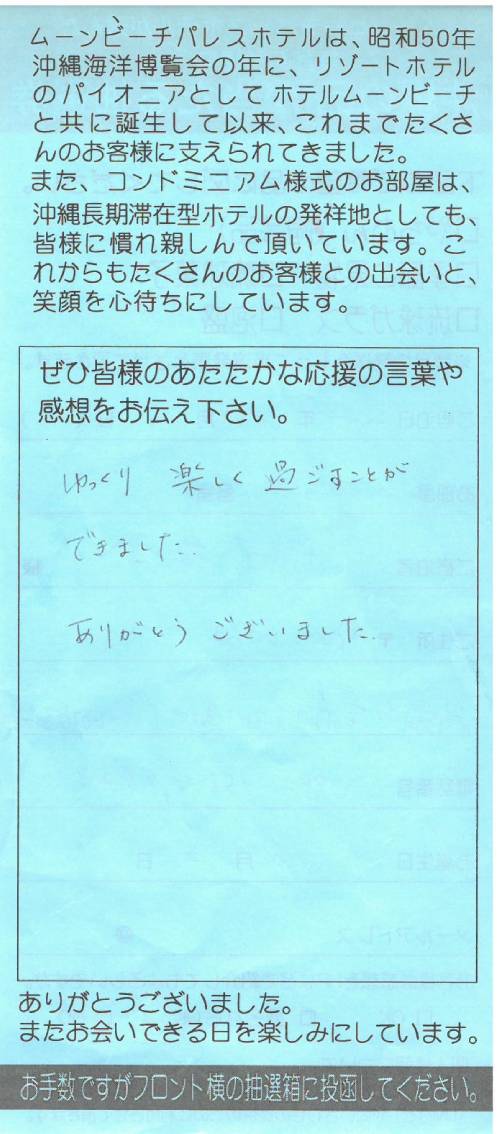 ムーンビーチパレスホテルは、昭和50年
沖縄海洋博覧会の年に、リゾートホテル
のパイオニアとしてホテルムーンビーチ
と共に誕生して以来、これまでたくさ
んのお客様に支えられてきました。
また、コンドミニアム様式のお部屋は、
沖縄長期滞在型ホテルの発祥地としても、
皆様に慣れ親しんで頂いています。こ
れからもたくさんのお客様との出会いと、
笑顔を心待ちにしています。
ぜひ皆様のあたたかな応援の言葉や
感想をお伝え下さい。
ゆっくり 楽しく 過ごすことが
できました。
ありがとう ございました。
ありがとうございました。
またお会いできる日を楽しみにしています。
お手数ですがフロント横の抽選箱に投函してください。